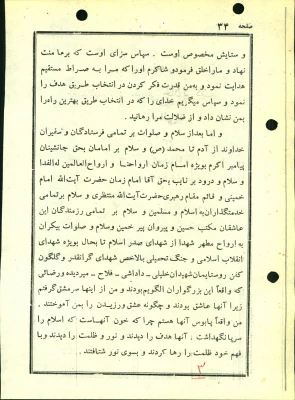 صفحه ۳۴
و ستایش مخصوص اوست . سپاس سزای اوست که برما منت
نهاد و ما را خلق فرمود و شاکرم او را که مرا به صراط مستقیم
هدایت نمود و به من قدرت فکر کردن در انتخاب طریق هدف را
نمود و سپاس میگزیم خدای را که در انتخاب طریق بهترین راه را
بمن نشان داد و از ضلالت مرا رهانید .
و اما بعد از سلام و صلوات بر تمامی فرستادگان و سفیران
خداوند از آدم تا محمد (ص) و سلام بر امامان بحق جانشینان
پیامبر اکرم بویژه امام زمان ارواحنا و ارواح العالمین له الفدا
و سلام و درود بر نایب بحق آقا امام زمان حضرت آیت الله امام
خمینی و قائم مقام رهبری حضرت آیت الله منتظری و سلام بر تمامی
خدمتگذاران به اسلام و مسلمین و سلام بر تمامی رزمندگان این
عاشقان مکتب حسین و پیروان پیر خمین وسلام و صلوات بیکران
به ارواح مطهر شهدا از شهدای صدر اسلام تا بحال بویژه شهدای
انقلاب اسلامی و جنگ تحمیلی بالاخص شهدای گرانقدر و گلگون
کفن روستایمان شهیدان خلیلی - داداشی - فلاح - میردیده و رضائی
که واقعاً این بزرگواران الگویم بودند و من از اینها سرمشق گرفتم
زیرا آنها عاشق بودند و چگونه عشق ورزیدن را بمن آموختند .
من واقعاً پابوس آنها هستم چرا که خون آنهاست که اسلام را
سرپا نگهداشت . آنها هدف را دیدند و نور و ظلمت را دیدند و با
فهم خود ظلمت را رها کردند و بسوی نور شتافتند .
۳